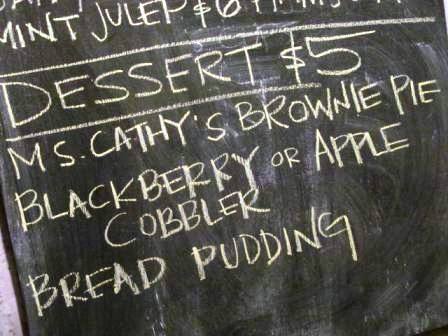 MINT JULEP $6
DESSERT $5
MS. CATHY'S BROWNIE PIE
BLACKBERRY OR APPLE
COBBLER
BREAD PUDDING